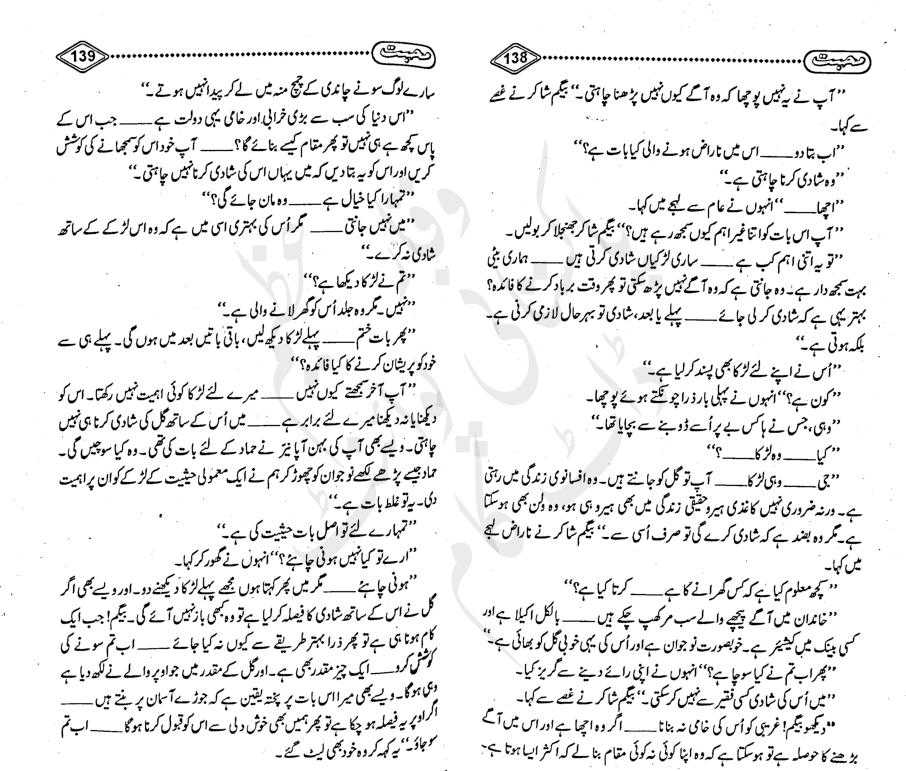 محبت 138
”آپ نے یہ نہیں پوچھا کہ وہ آگے کیوں نہیں پڑھنا چاہتی۔“ بیگم شاکر نے غصے
سے کہا۔
”اب بتا دو____ اس میں ناراض ہونے والی کیا بات ہے؟“
”وہ شادی کرنا چاہتی ہے۔“
”اچھا____“ انہوں نے عام سے لہجے میں کہا۔
”آپ اس بات کو اتنا غیر اہم کیوں سمجھ رہے ہیں؟“ بیگم شاکر جھنجلا کر بولیں۔
”تو یہ اتنی اہم کب ہے____ ساری لڑکیاں شادی کرتی ہیں____ ہماری بیٹی
بہت سمجھ دار ہے۔ وہ جانتی ہے کہ وہ آگے نہیں پڑھ سکتی تو پھر وقت برباد کرنے کا فائدہ؟
بہتر یہی ہے کہ شادی کر لی جائے____ پہلے یا بعد، شادی تو بہرحال لازمی کرنی ہے۔
بلکہ ہوتی ہے۔“
”اُس نے اپنے لئے لڑکا بھی پسند کر لیا ہے۔“
”کون ہے؟“ انہوں نے پہلی بار ذرا چونکتے ہوئے پوچھا۔
”وہی، جس نے ہاکس بے پر اُسے ڈوبنے سے بچایا تھا۔“
”کیا____ وہ لڑکا____؟“
”جی____ وہی لڑکا____ آپ تو گل کو جانتے ہیں۔ وہ افسانوی زندگی میں رہتی
ہے۔ ورنہ ضروری نہیں کاغذی ہیرو حقیقی زندگی میں بھی ہیرو ہی ہو، وہ ولن بھی ہو سکتا
ہے۔ مگر وہ بضد ہے کہ شادی کرے گی تو صرف اُسی سے۔“ بیگم شاکر نے ناراض لہجے
میں کہا۔
”کچھ معلوم کیا ہے کہ کس گھرانے کا ہے____ کرتا کیا ہے؟“
”خاندان میں آگے پیچھے والے سب مر کھپ چکے ہیں____ بالکل اکیلا ہے اور
کسی بینک میں کیشیئر ہے۔ خوبصورت نوجوان ہے اور اُس کی یہی خوبی گل کو بھائی ہے۔“
”پھر اب تم نے کیا سوچا ہے؟“ انہوں نے اپنی رائے دینے سے گریز کیا۔
”میں اُس کی شادی کسی فقیر سے نہیں کر سکتی۔“ بیگم شاکر نے غصے سے کہا۔
”دیکھو بیگم! غریبی کو اُس کی خامی نہ بنانا____ اگر وہ اچھا ہے اور اس میں آگے
بڑھنے کا حوصلہ ہے تو ہو سکتا ہے کہ وہ اپنا کوئی نہ کوئی مقام بنا لے کہ اکثر ایسا ہوتا ہے۔
محبت 139
سارے لوگ سونے چاندی کے چمچ منہ میں لے کر پیدا نہیں ہوتے۔“
”اس دنیا کی سب سے بڑی خرابی اور خامی یہی دولت ہے____ جب اس کے
پاس کچھ ہے ہی نہیں تو پھر مقام کیسے بنائے گا؟____ آپ خود اس کو سمجھانے کی کوشش
کریں اور اس کو یہ بتا دیں کہ میں یہاں اس کی شادی کرنا نہیں چاہتی۔“
”تمہارا کیا خیال ہے____ وہ مان جائے گی؟“
”میں نہیں جانتی____ مگر اُس کی بہتری اسی میں ہے کہ وہ اس لڑکے کے ساتھ
شادی نہ کرے۔“
”تم نے لڑکا دیکھا ہے؟“
”نہیں۔ مگر وہ جلد اُس کو گھر لانے والی ہے۔“
”پھر بات ختم____ پہلے لڑکا دیکھ لیں، باقی باتیں بعد میں ہوں گی۔ پہلے ہی سے
خود کو پریشان کرنے کا کیا فائدہ؟“
”آپ آخر سمجھتے کیوں نہیں____ میرے لئے لڑکا کوئی اہمیت نہیں رکھتا۔ اس کو
دیکھنا یا نہ دیکھنا میرے لئے برابر ہے____ میں اُس کے ساتھ گل کی شادی کرنا ہی نہیں
چاہتی۔ ویسے بھی آپ کی بہن آپا نیئر نے حماد کے لئے بات کی تھی۔ وہ کیا سوچیں گی۔
حماد جیسے پڑھے لکھے نوجوان کو چھوڑ کر ہم نے ایک معمولی حیثیت کے لڑکے کو ان پر اہمیت
دی۔ یہ تو غلط بات ہے۔“
”تمہارے لئے تو اصل بات حیثیت کی ہے۔“
”ارے تو کیا نہیں ہونی چاہئے؟“ انہوں نے گھور کر کہا۔
”ہونی چاہئے____ مگر میں پھر کہتا ہوں مجھے پہلے لڑکا دیکھنے دو۔ اور ویسے بھی اگر
گل نے اس کے ساتھ شادی کا فیصلہ کر لیا ہے تو وہ کبھی باز نہیں آئے گی۔ بیگم! جب ایک
کام ہونا ہی ہے تو پھر ذرا بہتر طریقے سے کیوں نہ کیا جائے____ اب تم سونے کی
کوشش کرو____ ایک چیز مقدر بھی ہے۔ اور گل کے مقدر میں جو اوپر والے نے لکھ دیا ہے
وہی ہوگا۔ ویسے بھی میرا اس بات پر پختہ یقین ہے کہ جوڑے آسمان پر بنتے ہیں____
اگر اوپر یہ فیصلہ ہو چکا ہے تو پھر ہمیں بھی خوش دلی سے اس کو قبول کرنا ہوگا____ اب تم
سو جاؤ۔“ یہ کہہ کر وہ خود بھی لیٹ گئے۔